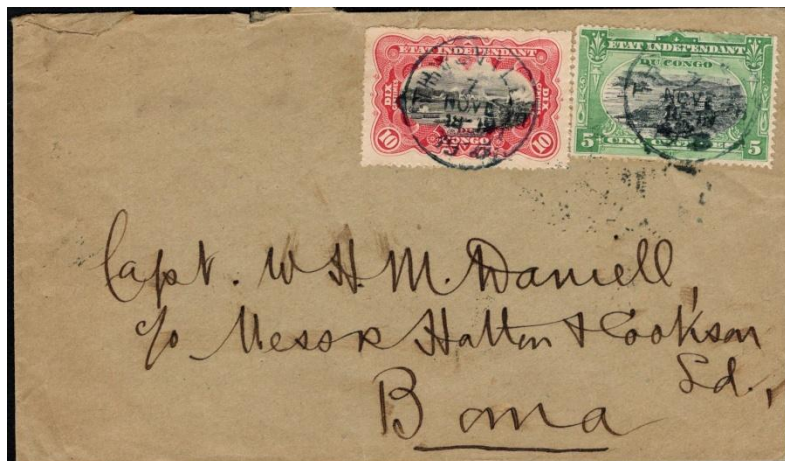 ETAT INDEPENDANT
DIX
CENTIMES
10
CONGO
10
ETAT INDEPENDANT
DU CONGO
5
5
NOV
NOV
Capt. W H. M. Daniell,
c/o Messrs Hatton & Cookson
Ld.,
Boma